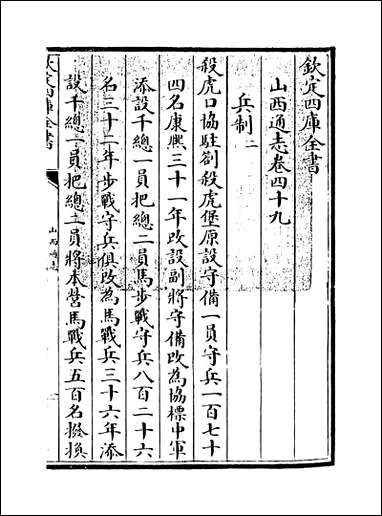 欽定四庫全書
山西通志卷四十九
兵制二
殺虎口協駐劄殺虎堡原設守備一員守兵一百七十
四名康熙三十一年改設副將守備改為協標中軍
添設千總一員把總二員馬步戰守兵八百二十六
名三十二年步戰守兵俱改為馬戰兵三十六年添
設千總二員把總三員將本營馬戰兵五百名撥換
欽定四庫全書
山西通志